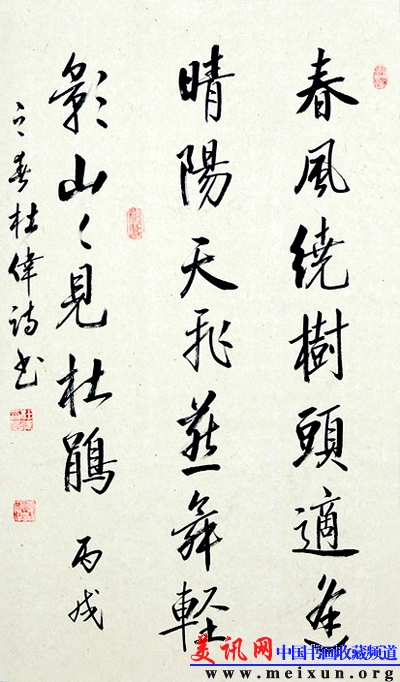 春風繞樹頭適逢
晴陽天飛燕舞輕
影山々見杜鵑 丙戌
之春杜偉詩书
美讯网 中国书画收藏频道
www.meixun.org